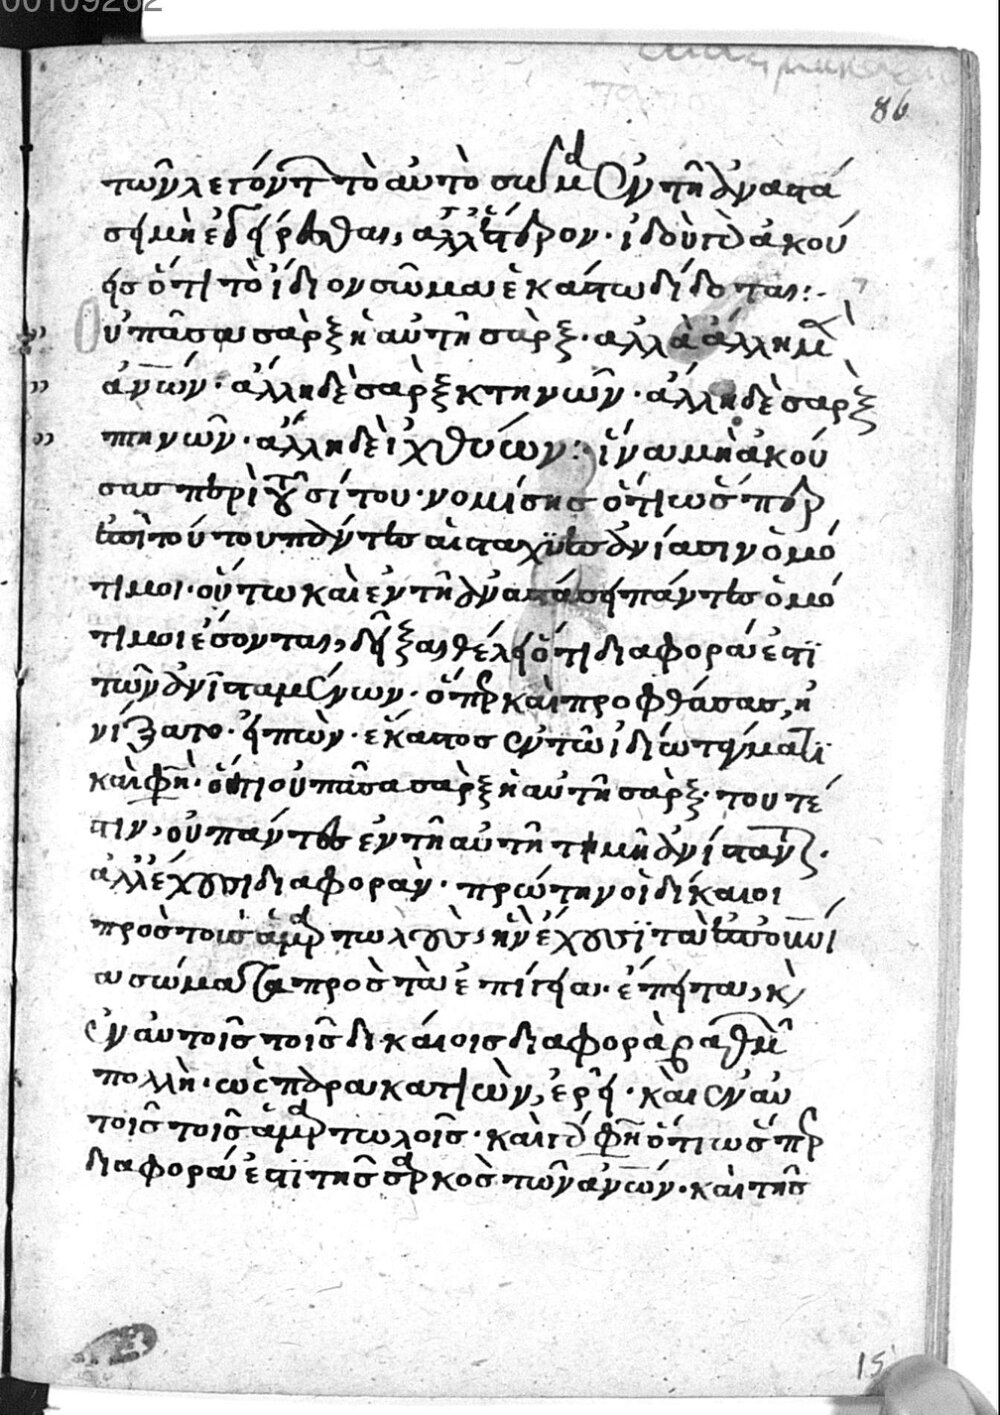 00109262
86
τῶν λεγόντων τὸ αὐτὸ σῶμα ἐν τῇ ἀναστά
σει μὴ ἐγείρεσθαι, ἀλλ' ἕτερον· ἰδοὺ γὰρ ἀκού
εις ὅτι τὸ ἴδιον σῶμα ἑκάστω δίδοται:
Οὐ πᾶσα σὰρξ ἡ αὐτὴ σάρξ· ἀλλὰ ἄλλη μὲν
ἀν̅ων· ἄλλη δὲ σὰρξ κτηνῶν· ἄλλη δὲ σὰρξ
πτηνῶν· ἄλλη δὲ ἰχθύων: ἵνα μὴ ἀκού
σας περὶ τοῦ σίτου· νομίσης ὅτι ὥσπερ
ἐπὶ τούτου πάντες οἱ στάχυες ἀνίασιν ὁμό
τιμοι· οὕτω καὶ ἐν τῇ ἀναστάσει πάντες ὁμό
τιμοι ἔσονται, δεῖξαι θέλει ὅτι διαφορά ἐστι
τῶν ἀνισταμένων· ὅπερ καὶ προφθάσας, ἠ
νίξατο· εἰπὼν· ἕκαστος ἐν τῷ ἰδίω τάγματι
καὶ φησὶν· ὅτι οὐ πᾶσα σὰρξ ἡ αὐτὴ σάρξ· τουτέ
στιν, οὐ πάντες ἐν τῇ αὐτῇ τιμῇ ἀνίστανται·
ἀλλ' ἔχουσι διαφοράν· πρώτην οἱ δίκαιοι
πρὸς τοὺς ἁμαρτωλοὺς, ἣν ἔχουσι τὰ ἐπουράνι
α σώματα πρὸς τὰ ἐπίγεια· ἔπειτα, καὶ
ἐν αὐτοῖς τοῖς δικαίοις διαφορὰ βαθμῶν
πολλὴ· ὡς παρακατιὼν, ἐρεῖ· καὶ ἐν αὐ
τοῖς τοῖς ἁμαρτωλοῖς· καὶ γὰρ φησὶν ὅτι ὥσπερ
διαφορά ἐστι τῆς σαρκὸς τῶν ἀν̅ων· καὶ τῆς
15